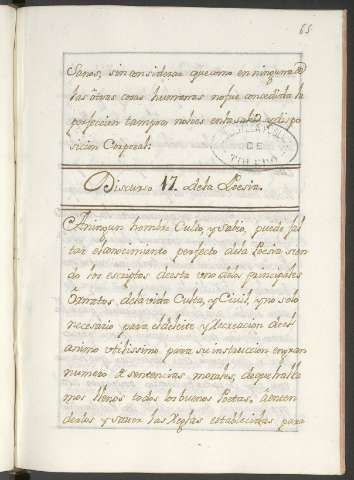 65
Sanos, sin considerar que como en ninguna de
las otras cosas humanas no fue concedida la
perfeccion tampoco no lo es en la salud y dispo
sicion Corporal:
DE
TOLEDO
Discurso 17. de la Poesia.
Aningun hombre Culto, y sabio, puede fal
tar el conocimiento perfecto de la Poesia sien
do los escriptos de esta uno de los principales
Ornatos de la vida Culta, y Civil, y no solo
necesario para el deleite y Recreacion de el
animo utilissimo para su instruccion en gran
numero de sentencias morales, de que halla
mos llenos todos los buenos Poetas. Aenten
derlos y saver las Reglas establecidas para